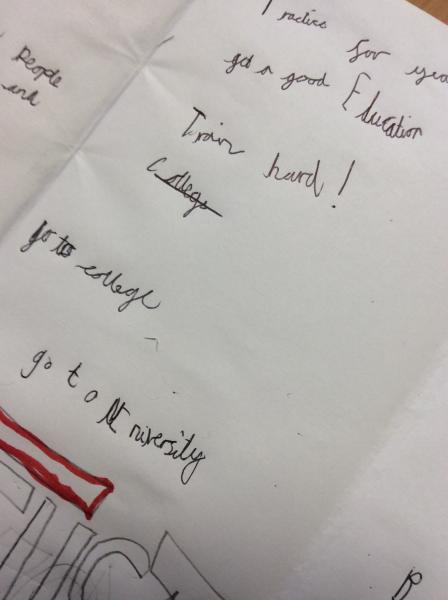 People
and
Practice for yea
get a good Education
Train hard!
College
go to college
go to University